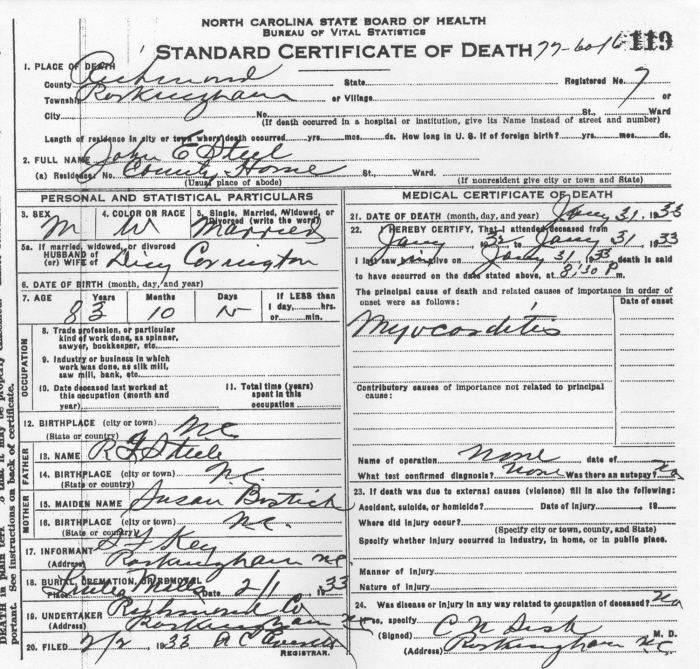 NORTH CAROLINA STATE BOARD OF HEALTH
BUREAU OF VITAL STATISTICS
STANDARD CERTIFICATE OF DEATH 119
1. PLACE OF DEATH
County Richmond State Registered No. 7
Township Rockingham or Village or
City No. St., Ward
(If death occurred in a hospital or institution, give its Name instead of street and number)
Length of residence in city or town where death occurred yrs. mos. ds. How long in U. S. if of foreign birth? yrs. mos. ds.
2. FULL NAME John E Steel
(a) Residence: No. County Home St., Ward.
(Usual place of abode) (If nonresident give city or town and State)
PERSONAL AND STATISTICAL PARTICULARS
3. SEX M 4. COLOR OR RACE W 5. Single, Married, Widowed, or Divorced (write the word) Married
5a. If married, widowed, or divorced
HUSBAND of
(or) WIFE of Covington
6. DATE OF BIRTH (month, day, and year)
7. AGE Years Months Days If LESS than
83 10 1 day, hrs.
or min.
OCCUPATION
8. Trade, profession, or particular
kind of work done, as spinner,
sawyer, bookkeeper, etc.
9. Industry or business in which
work was done, as silk mill,
saw mill, bank, etc.
10. Date deceased last worked at
this occupation (month and
year)
11. Total time (years)
spent in this
occupation
12. BIRTHPLACE (city or town)
(State or country) N.C.
FATHER
13. NAME Steele
14. BIRTHPLACE (city or town)
(State or country) N.C.
MOTHER
15. MAIDEN NAME Susan Bostick
16. BIRTHPLACE (city or town)
(State or country) N.C.
17. INFORMANT Key
(Address) Rockingham N.C.
18. BURIAL, CREMATION, OR REMOVAL
Place Date 2/1 1933
19. UNDERTAKER Richmond Co
(Address) Rockingham N.C.
20. FILED 2/2 1933
REGISTRAR.
MEDICAL CERTIFICATE OF DEATH
21. DATE OF DEATH (month, day, and year) Jany 31, 1933
22. I HEREBY CERTIFY, That I attended deceased from
Jany 1932 to Jany 31 1933
I last saw alive on Jany 31 1933 death is said
to have occurred on the date stated above, at 8:30 P m.
The principal cause of death and related causes of importance in order of
onset were as follows: Date of onset
Myocarditis
Contributory causes of importance not related to principal
cause:
Name of operation None date of
What test confirmed diagnosis? None Was there an autopsy? No
23. If death was due to external causes (violence) fill in also the following:
Accident, suicide, or homicide? Date of Injury 19
Where did injury occur?
(Specify city or town, county, and State)
Specify whether injury occurred in industry, in home, or in public place.
Manner of Injury
Nature of Injury
24. Was disease or injury in any way related to occupation of deceased? No
If so, specify
(Signed) C N Sisk M. D.
(Address) Rockingham N.C.
DEATH in plain
portant. See instructions on back of certificate.